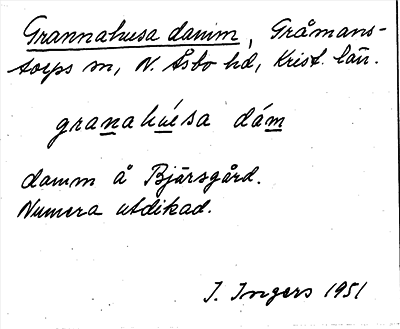 Grannahusa damm, Gråmans-
torps sn, N. Åsbo hd, Krist. län.
granahúsa dám
damm å Bjärsgård.
Numera utdikad.
I. Ingers 1951